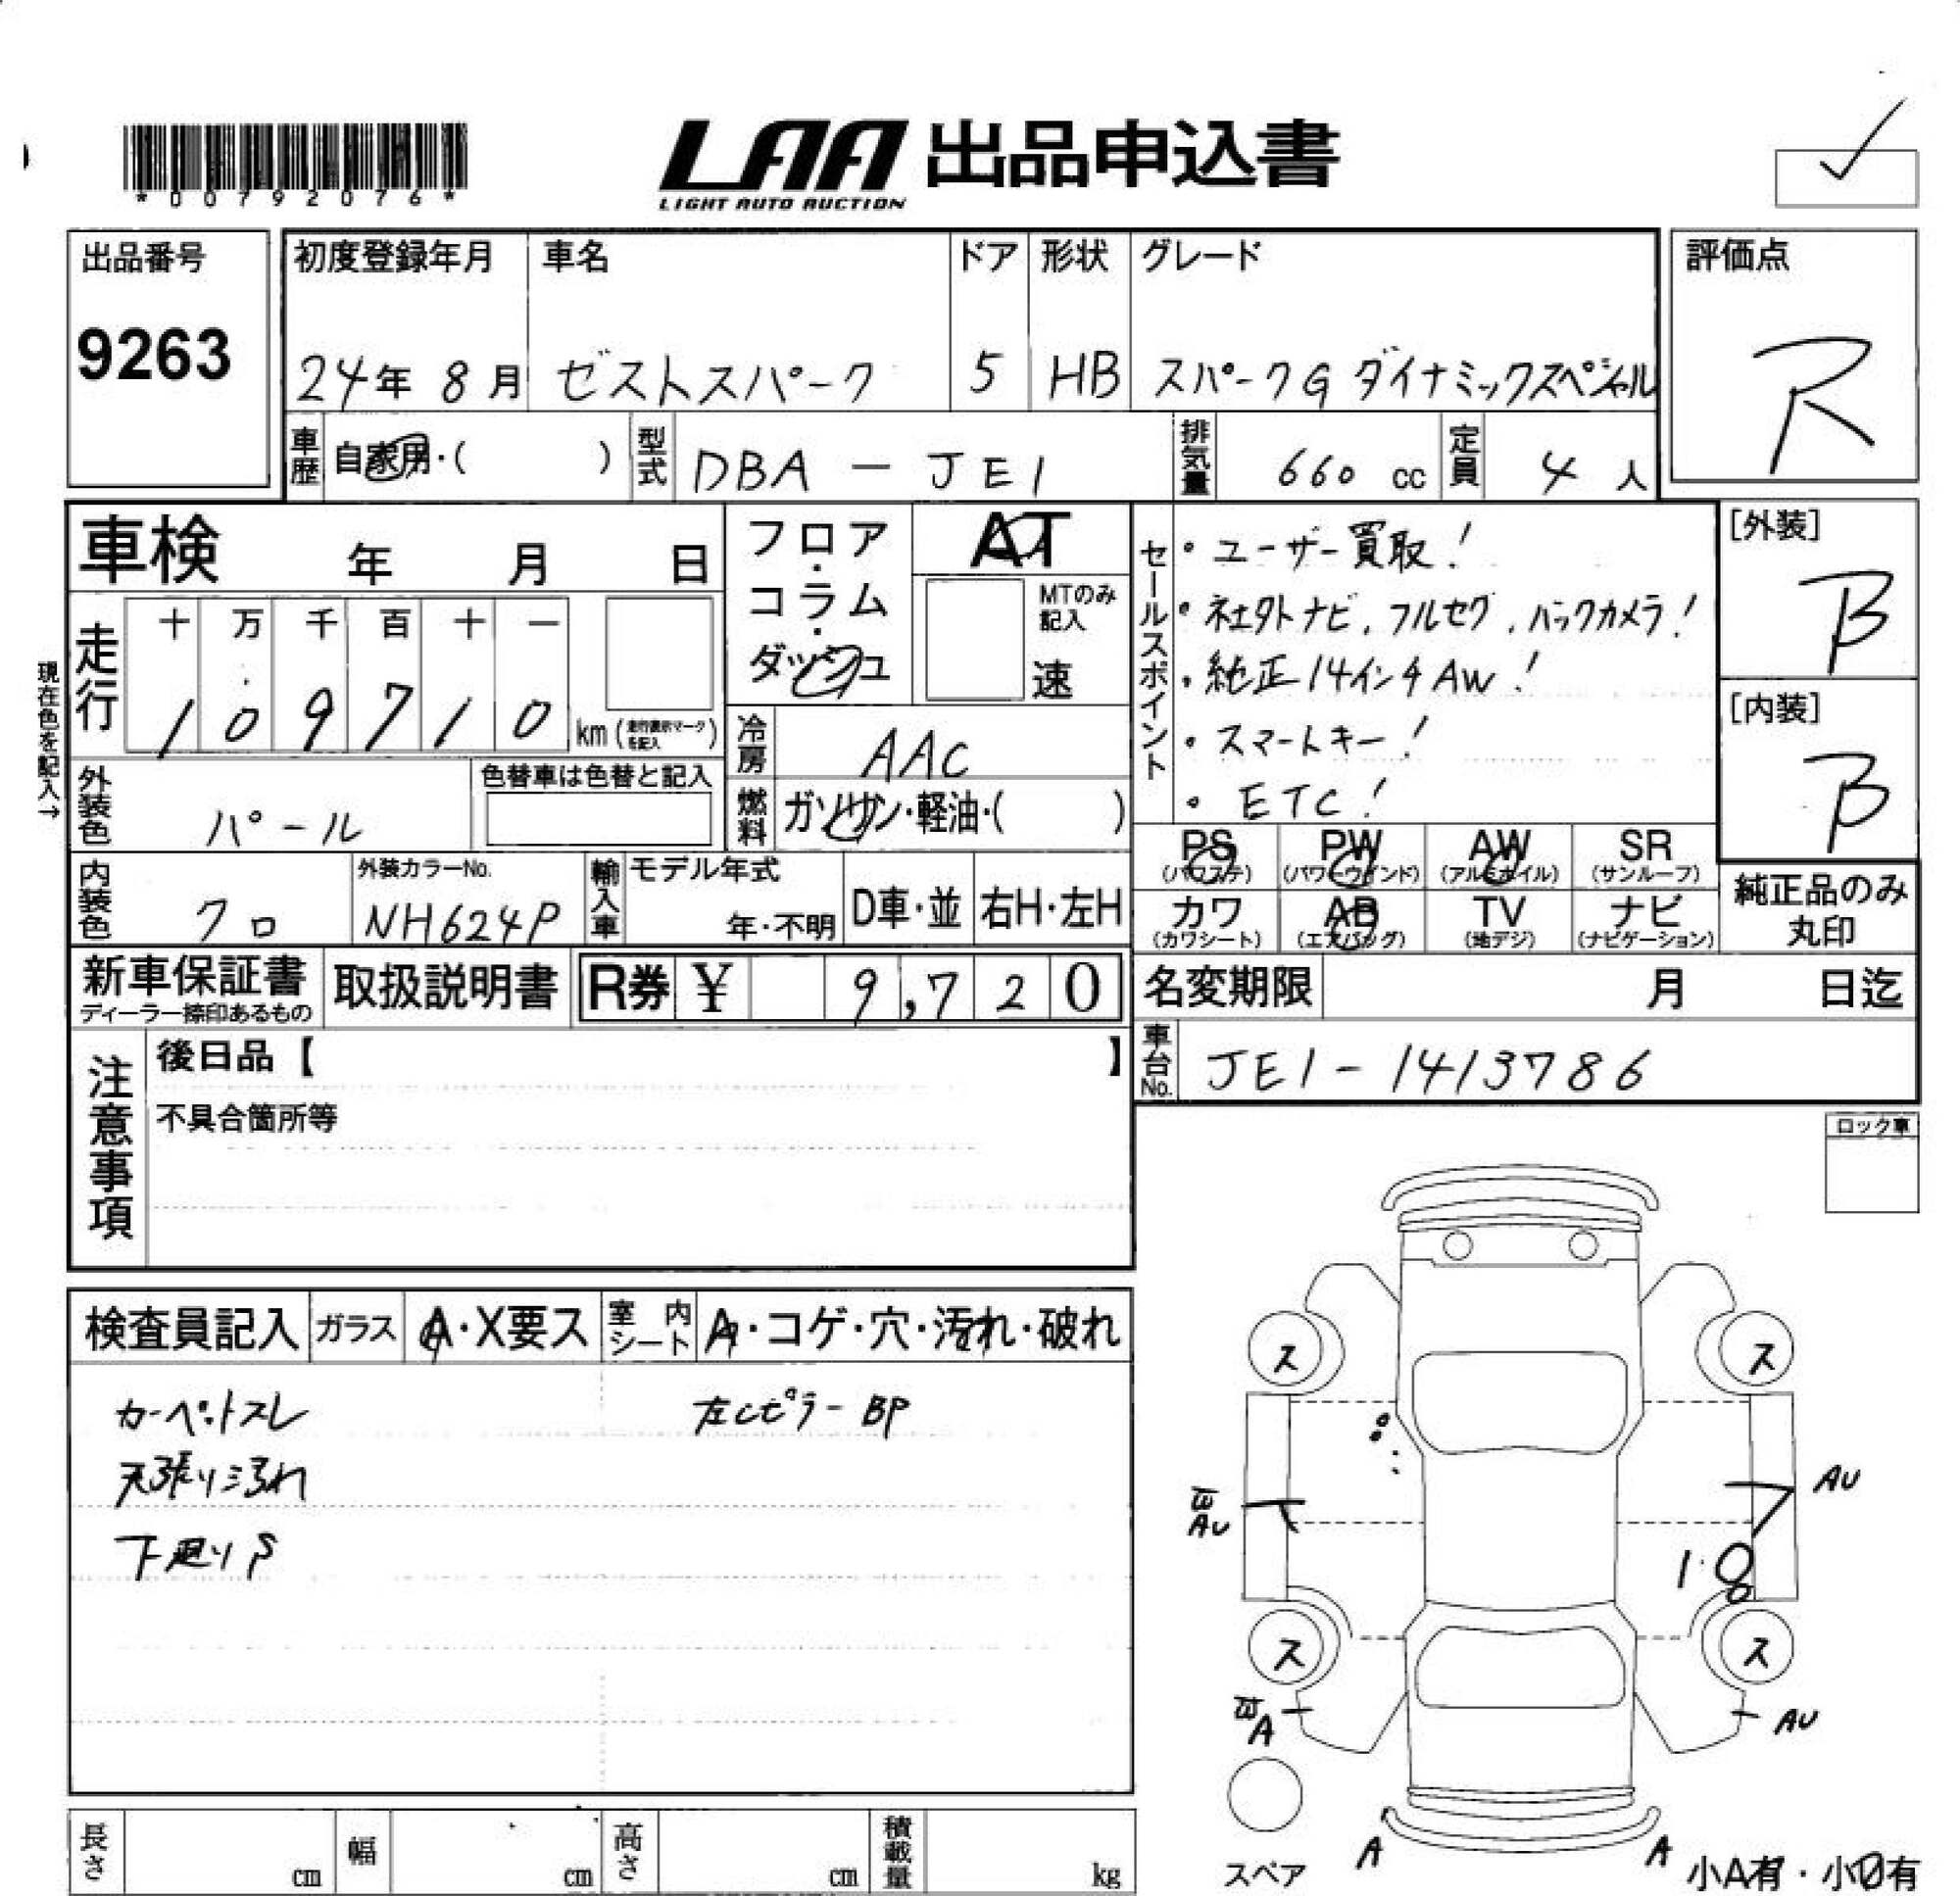 *00792076*
LAA 出品申込書
LIGHT AUTO AUCTION
出品番号
9263
初度登録年月
24年 8月
車名
ゼストスパーク
ドア
5
形状
HB
グレード
スパークG ダイナミックスペシャル
評価点
R
車歴 自家用・( )
型式 DBA - JE1
排気量 660 cc
定員 4 人
車検 年 月 日
フロア・コラム・ダッシュ
AT
MTのみ記入
速
セールスポイント
・ユーザー買取!
・社外ナビ, フルセグ, バックカメラ!
・純正14インチAW!
・スマートキー!
・ETC!
[外装]
B
[内装]
B
現在色を記入→
走行
十 万 千 百 十 一
1 0 9 7 1 0 km (走行表示マークを記入)
冷房 AAC
燃料 ガソリン・軽油・( )
外装色 パール
色替車は色替と記入
内装色 クロ
外装カラーNo.
NH624P
輸入車
モデル年式
年・不明
D車・並
右H・左H
PS (パワステ)
PW (パワーウインド)
AW (アルミホイル)
SR (サンルーフ)
カワ (カワシート)
AB (エアバッグ)
TV (地デジ)
ナビ (ナビゲーション)
純正品のみ丸印
新車保証書
ディーラー捺印あるもの
取扱説明書
R券 ¥ 9,720
名変期限 月 日迄
車台No. JE1-1413786
注意事項
後日品【 】
不具合箇所等
ロック車
検査員記入
ガラス A・X要ス
室内シート A・コゲ・穴・汚れ・破れ
カーペットスレ
天張り汚れ
下廻りS
左Cピラー BP
ス
ス
AU
AU
18
ス
ス
A
AU
スペア
A
A
小A有・小U有
長さ cm
幅 cm
高さ cm
積載量 kg